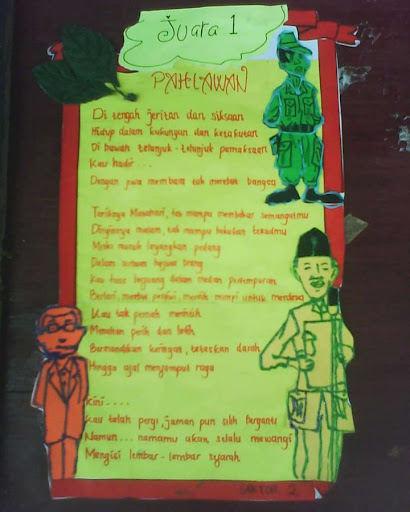 Juara 1
PAHLAWAN
Di tengah jeritan dan siksaan
Hidup dalam kukungan dan ketakutan
Di bawah telunjuk - telunjuk pemaksaan
Kau hadir ...
Dengan jiwa membara tak merebak bangsa
Teriknya Matahari, tak mampu membakar semangatmu
Dinginnya malam, tak mampu bekukan tekadmu
Meski musuh layangkan pedang
Dalam seribu perang
Kau terus berjuang dalam medan pertempuran
Berlari, menuju mimpi untuk merdeka
Kau tak pernah merintih
Menahan perih dan letih
Bermandikan keringan, tetaskan darah
Hingga ajal menjemput raga
Kini ....
Kau telah pergi, jaman pun silih berganti
Namun ... namamu akan selalu mewangi
Mengisi lembar - lembar sejarah
SEKTOR 2